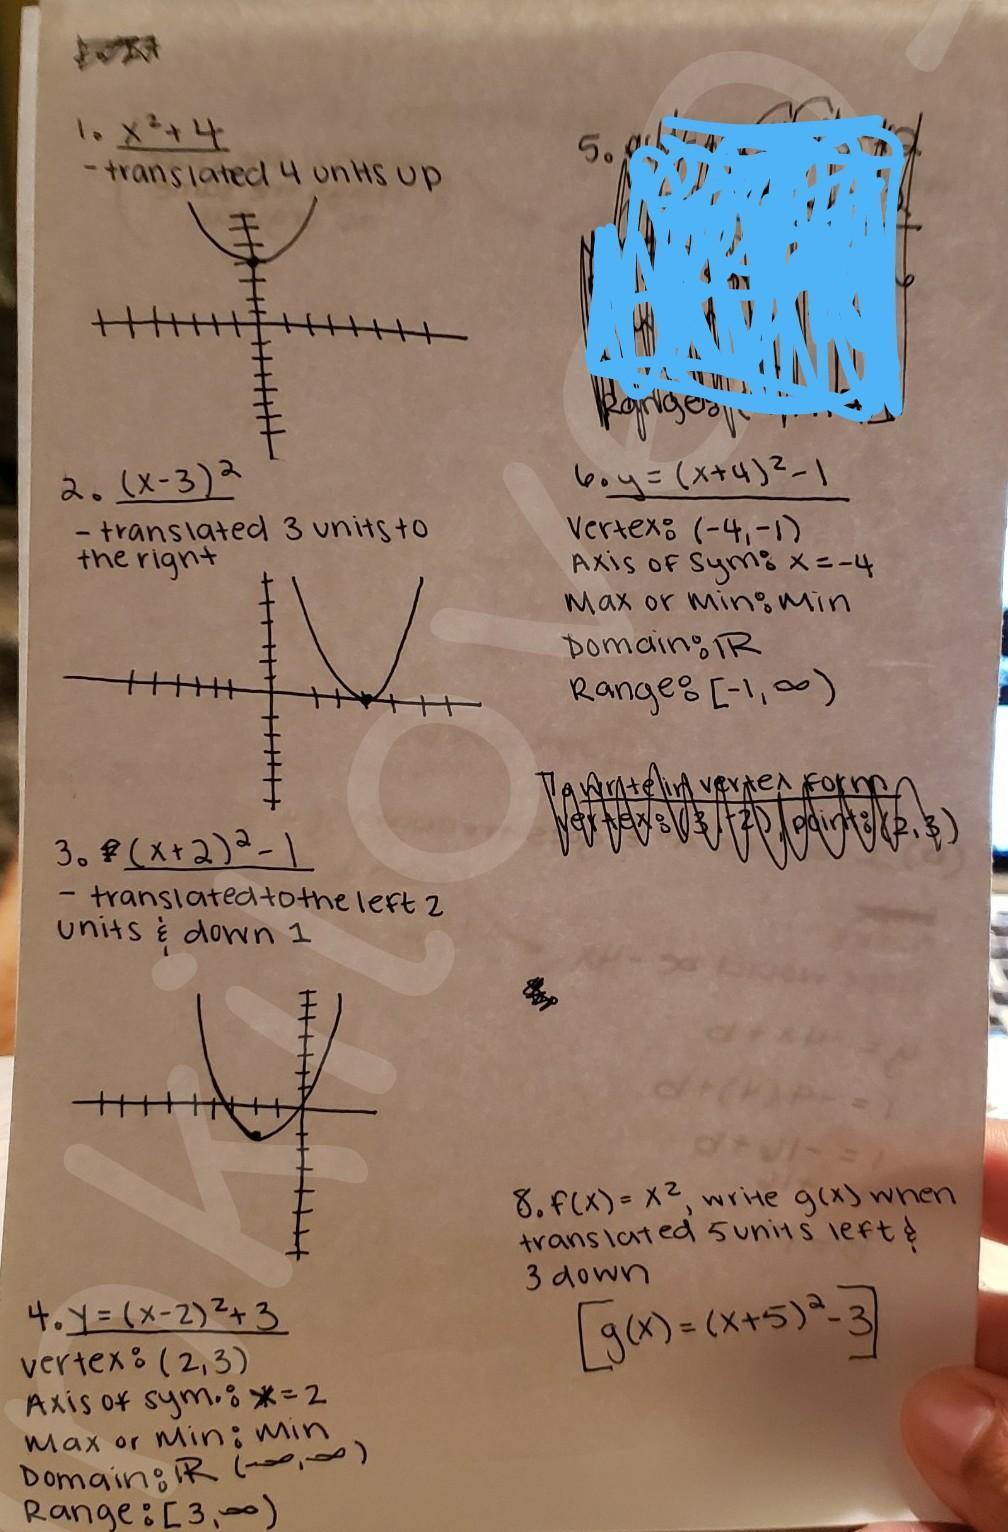 1. x²+4
- translated 4 units up
2. (x-3)²
- translated 3 units to
the right
3. (x+2)²-1
- translated to the left 2
units & down 1
4. y=(x-2)²+3
vertex: (2,3)
Axis of sym.: x=2
Max or Min: Min
Domain: ℝ (-∞,∞)
Range: [3,∞)
5.
Range:
6. y=(x+4)²-1
Vertex: (-4,-1)
Axis of sym: x=-4
Max or Min: Min
Domain: ℝ
Range: [-1,∞)
write in vertex form
vertex: (3,-2), point: (2,3)
8. f(x)=x², write g(x) when
translated 5 units left &
3 down
[g(x)=(x+5)²-3]